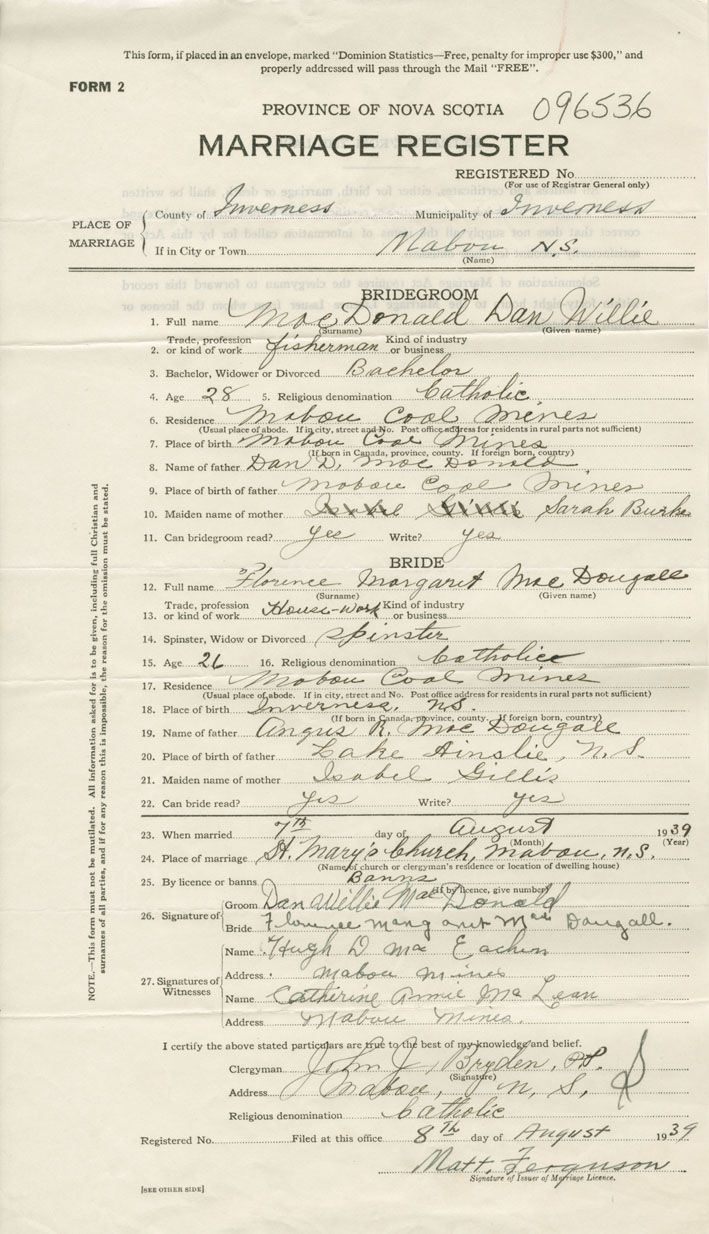 This form, if placed in an envelope, marked "Dominion Statistics—Free, penalty for improper use $300," and
properly addressed will pass through the Mail "FREE".
FORM 2
PROVINCE OF NOVA SCOTIA 096536
MARRIAGE REGISTER
REGISTERED No.
(For use of Registrar General only)
PLACE OF MARRIAGE
County of Inverness Municipality of Inverness
If in City or Town Mabou N.S.
(Name)
BRIDEGROOM
1. Full name MacDonald Dan Willie
(Surname) (Given name)
2. Trade, profession or kind of work fisherman Kind of industry or business
3. Bachelor, Widower or Divorced Bachelor
4. Age 28 5. Religious denomination Catholic
6. Residence Mabou Coal Mines
(Usual place of abode. If in city, street and No. Post office address for residents in rural parts not sufficient)
7. Place of birth Mabou Coal Mines
(If born in Canada, province, county. If foreign born, country)
8. Name of father Dan D. MacDonald
9. Place of birth of father Mabou Coal Mines
10. Maiden name of mother Isabel Gillis Sarah Burke
11. Can bridegroom read? yes Write? yes
BRIDE
12. Full name Florence Margaret MacDougall
(Surname) (Given name)
13. Trade, profession or kind of work House-work Kind of industry or business
14. Spinster, Widow or Divorced spinster
15. Age 26 16. Religious denomination Catholic
17. Residence Mabou Coal Mines
(Usual place of abode. If in city, street and No. Post office address for residents in rural parts not sufficient)
18. Place of birth Inverness, N.S.
(If born in Canada, province, county. If foreign born, country)
19. Name of father Angus R. MacDougall
20. Place of birth of father Lake Ainslie, N.S.
21. Maiden name of mother Isabel Gillis
22. Can bride read? yes Write? yes
23. When married 7th day of August 1939
(Month) (Year)
24. Place of marriage St. Mary's Church, Mabou, N.S.
(Name of church or clergyman's residence or location of dwelling house)
25. By licence or banns Banns
(If by licence, give number)
26. Signature of
Groom Dan Willie MacDonald
Bride Florence Margaret MacDougall.
27. Signatures of Witnesses
Name Hugh D MacEachen
Address Mabou Mines
Name Catherine Annie McLean
Address Mabou Mines.
I certify the above stated particulars are true to the best of my knowledge and belief.
Clergyman John J. Bryden, P.P.
(Signature)
Address Mabou, N.S.
Religious denomination Catholic
Registered No. Filed at this office 8th day of August 1939
Matt. Ferguson
Signature of Issuer of Marriage Licence.
[SEE OTHER SIDE]
NOTE.—This form must not be mutilated. All information asked for is to be given, including full Christian and
surnames of all parties, and if for any reason this is impossible, the reason for the omission must be stated.